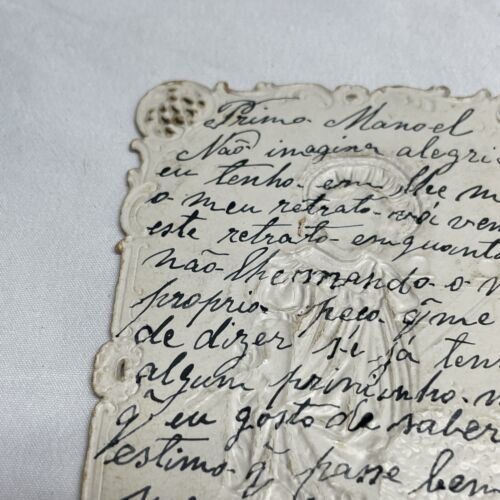 Primo Manoel
Não imagina alegri
eu tenho em lhe m
o meu retrato vai ven
este retrato enquanto
não lhe mando o m
proprio peço q̃ me
de dizer si já ten
algum priminho
q̃ eu gosto de saber
estimo q̃ passe bem